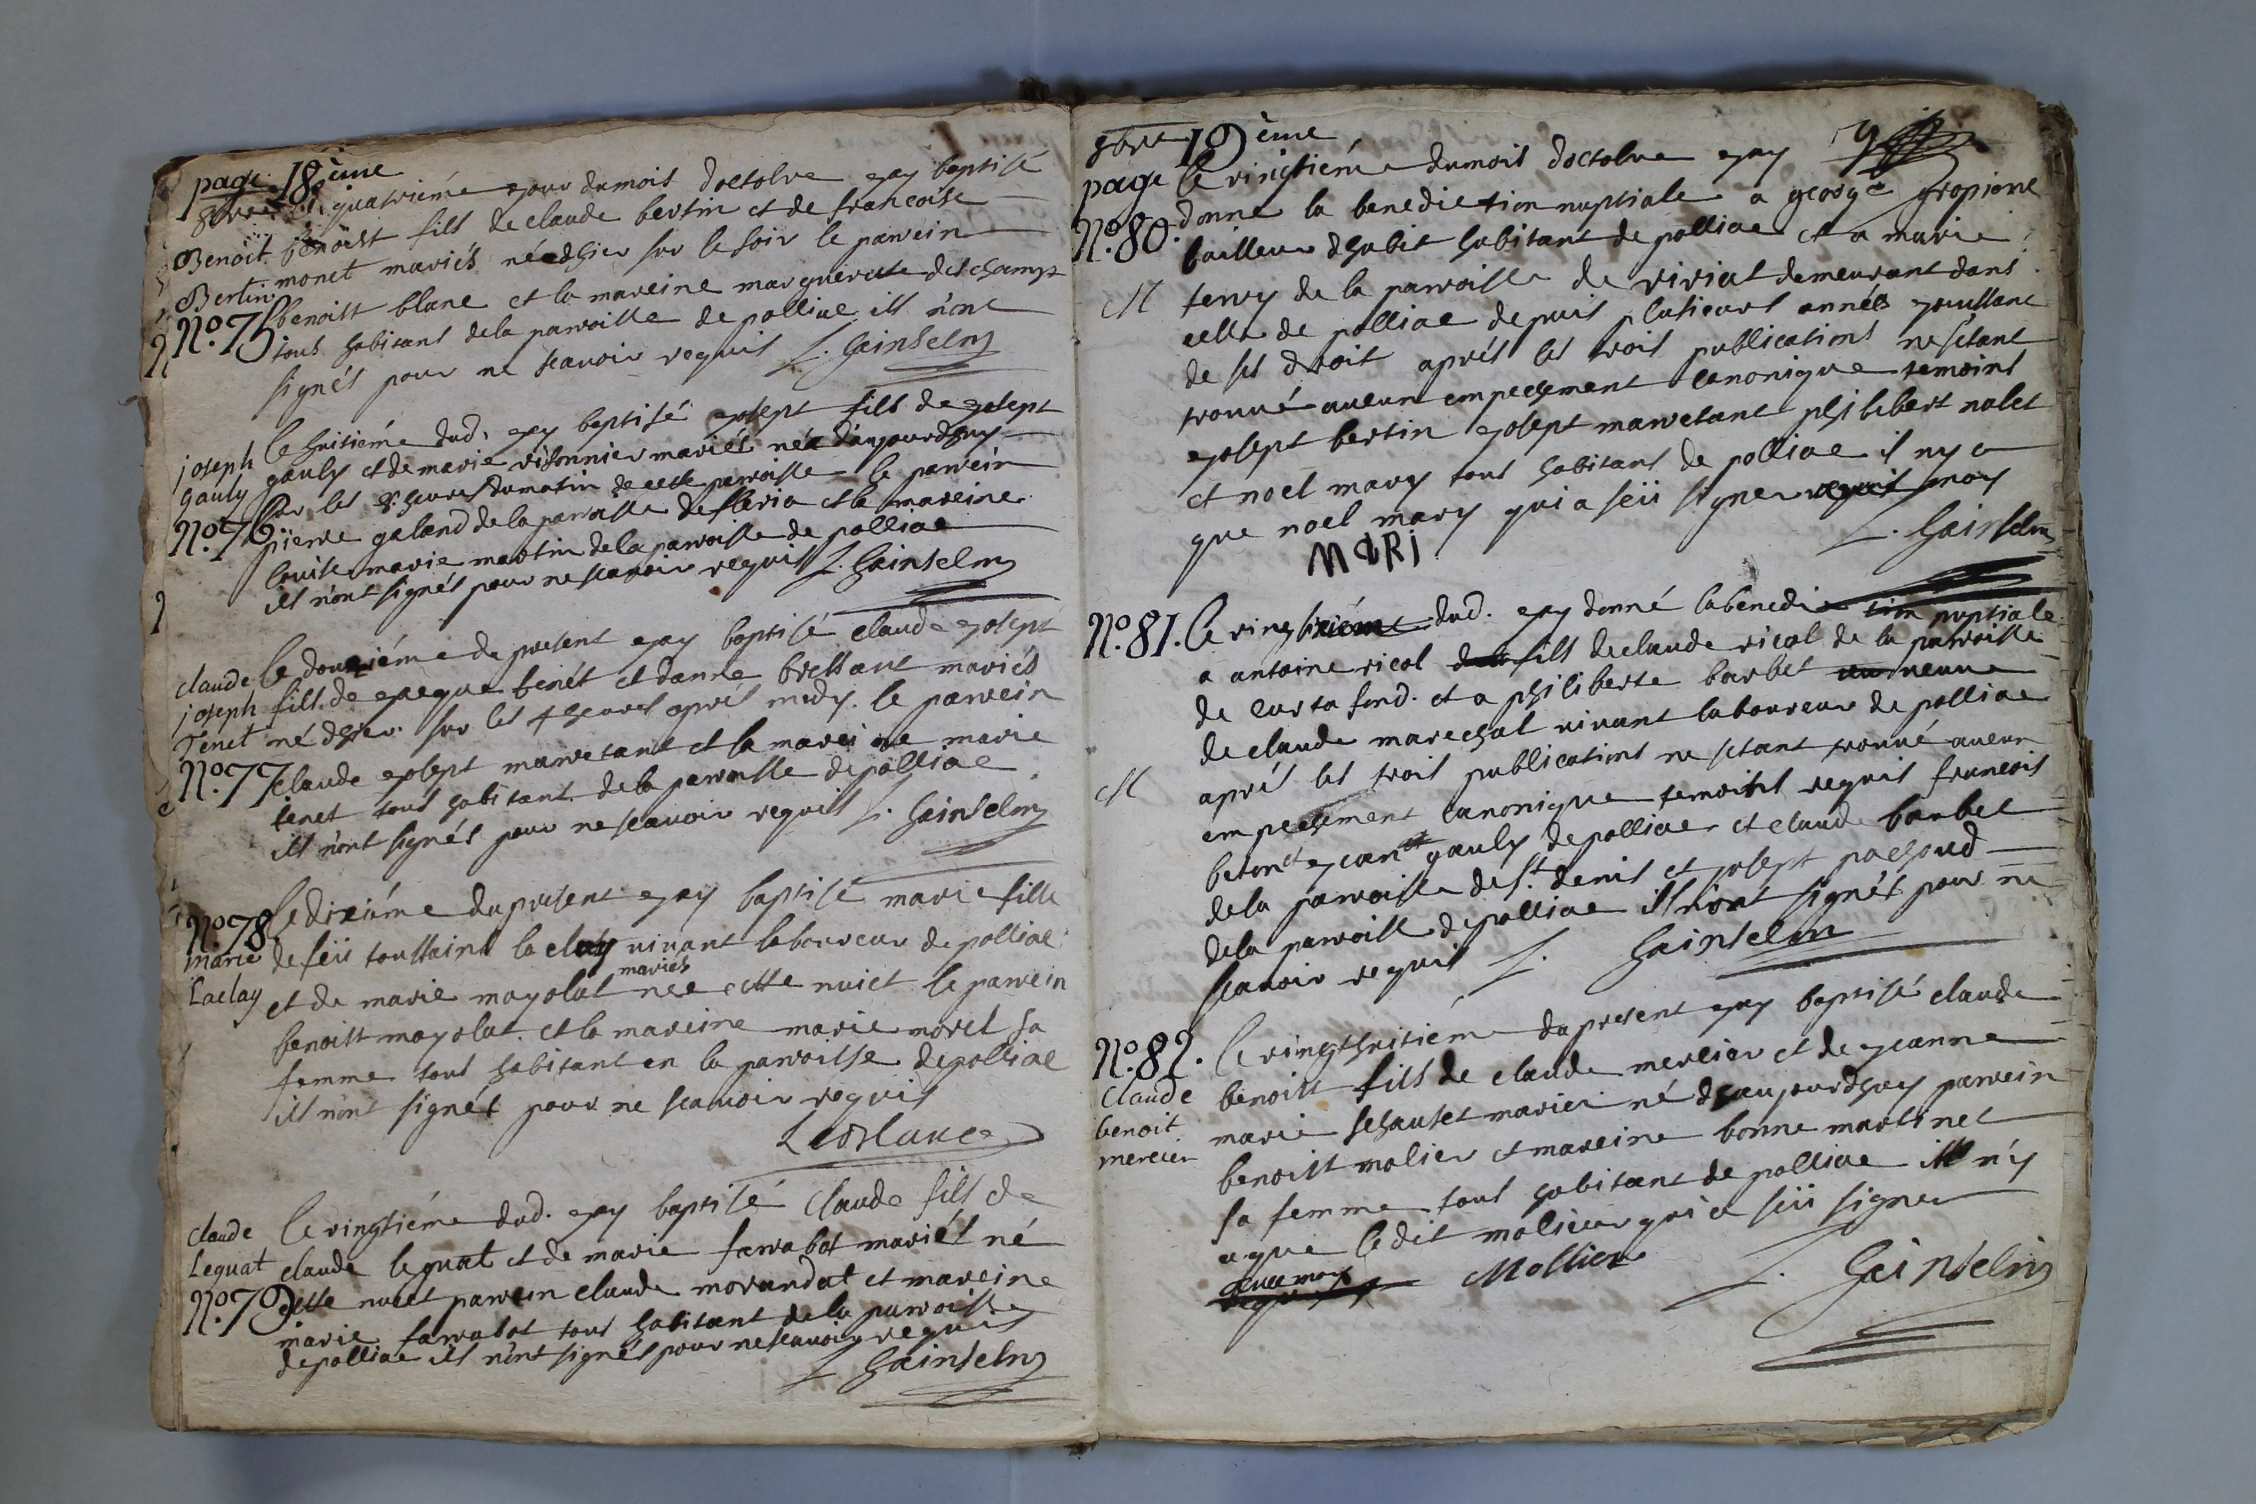 page 18ème
8bre Le quatriéme jour du mois doctobre jay baptisé
Benoit benoist fils de claude bertin et de francoise
Bertin monet mariés né dhier sur le soir le parrein
No. 75 benoist blanc et la mareine marguerite deschamps
tous habitans de la parroisse de polliac ils n'ont
signés pour ne scavoir requis J. Gainselin
joseph le huitiéme dud. jay baptisé joseph fils de joseph
gauly gauly et de marie vifonnier mariés né daujourdhuy
No. 76 sur les heures du matin de cette parroisse le parrein
pierre galand de la parroisse de fleria et la mareine
louise marie martin de la parroisse de polliac
ils n'ont signés pour ne scavoir requis J. Gainselin
claude le douziéme du present jay baptisé claude joseph
joseph fils de jacque tenét et danne bressant mariés
Tenet né dhier sur les 4 heures aprés midy. le parrein
No. 77 claude joseph marretant et la mareine marie
tenet tous habitant de la parroisse de polliac
ils n'ont signés pour ne scavoir requis J. Gainselin
No. 78 le dixiéme du present jay baptisé marie fille
marie de feü toussaint la clay vivant laboureur de polliac
mariés
Laclay et de marie mayolat née cette nuict le parrein
benoist mayolat et la mareine marie morel sa
femme tous habitant en la parroisse de polliac
ils n'ont signés pour ne scavoir requis
claude le vingtiéme dud. jay baptisé Claude fils de
Leguat claude leguat et de marie farrabot mariés né
No. 79 cette nuict parrein claude morandat et mareine
marie farrabot tous habitant de la parroisse
de polliac ils n'ont signés pour ne scavoir requis
J. Gainselin
8bre 19ème
page le vingtiéme du mois doctobre jay
No. 80. donne la benediction nuptiale a george gropione
tailleur dhabit habitant de polliac et a marie
M ferry de la parroisse de viriat demeurant dans
celle de polliac depuis plusieurs années jouissant
de ses droit aprés les trois publications ne sétant
trouvé aucun empechement canonique temoins
joseph bertin joseph marretant philibert nalet
et noel mary tous habitans de polliac il ny a
que noel mary qui a seü signer moy
MARI J. Gainselin
No. 81. Le vingt dud. jay donné la benediction nuptiale
a antoine ricol fils de claude ricol de la parroisse
de curtafond. et a philiberte barbet veuve
de claude marechal vivant laboureur de polliac
M aprés les trois publications ne sétant trouvé aucun
empechement canonique temoins requis francois
beton et jean gauly de polliac et claude barbet
de la parroisse de st. denis et joseph pachoud
de la parroisse de polliac ils n'ont signés pour ne
scavoir requis J. Gainselin
No. 82. le vingthuitiéme du present jay baptisé claude
Claude benoist fils de claude mercier et de jeanne
benoit marie schauset mariés né dhaujourdhuy parrein
mercier benoist molier et mareine bonne martinet
sa femme tous habitant de polliac il n'y
a que ledit molier qui a seü signer
avec moy Mollier J. Gainselin